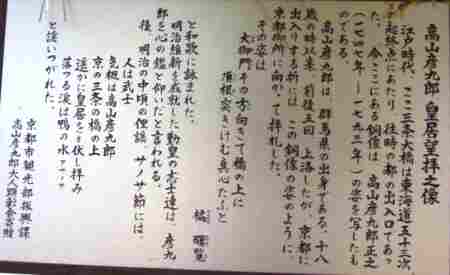 高山彦九郎 皇居望拝之像
江戸時代、ここ三条大橋は東海道五十三次
の起終点にあたり、往時の都の出入口であっ
た。今ここにある銅像は、高山彦九郎正之
（一七四七年〜一七九三年）の姿を写したも
のである
高山彦九郎は、群馬県の出身である。十八
歳の時以来、前後五回上洛したが、京都に
出入りする折には、この銅像の姿のように
京都御所に向かって拝礼した。
その姿は
大御門その方向きて橋の上に
頂根突きけむ真心たふと
橘 曙覧
と和歌に詠まれた。
明治維新を成就した勤皇の志士達は、彦九
郎を心の鑑と仰いだと言われる。
後、明治の中頃の俚謡、サノサ節には、
人は武士
気概は高山彦九郎
京の三条の橋の上
遥かに皇居をネ伏し拝み
落つる涙は鴨の水アサノサ
と謡いつがれた。
京都市観光部振興課
高山彦九郎大人顕彰会寄贈